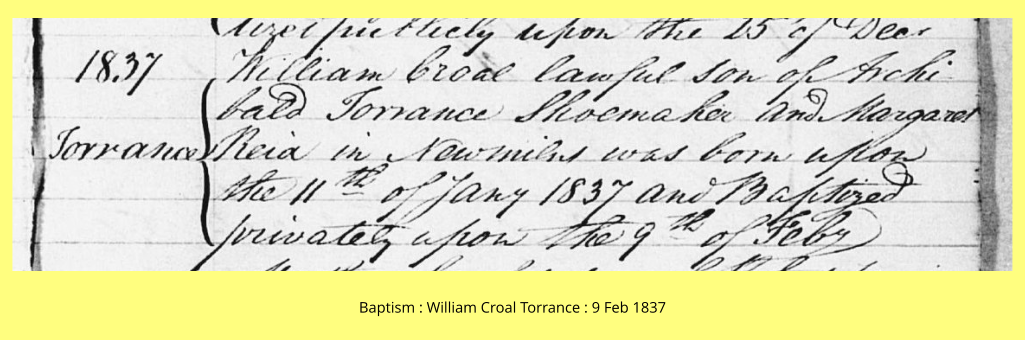 tized publicly upon the 25 of Decr
1837
William Croal lawful son of Archi-
bald Torrance Shoemaker and Margaret
Torrance
Reid in Newmilns was born upon
the 11th of Jany 1837 and Baptized
privately upon the 9th of Feby
Baptism : William Croal Torrance : 9 Feb 1837